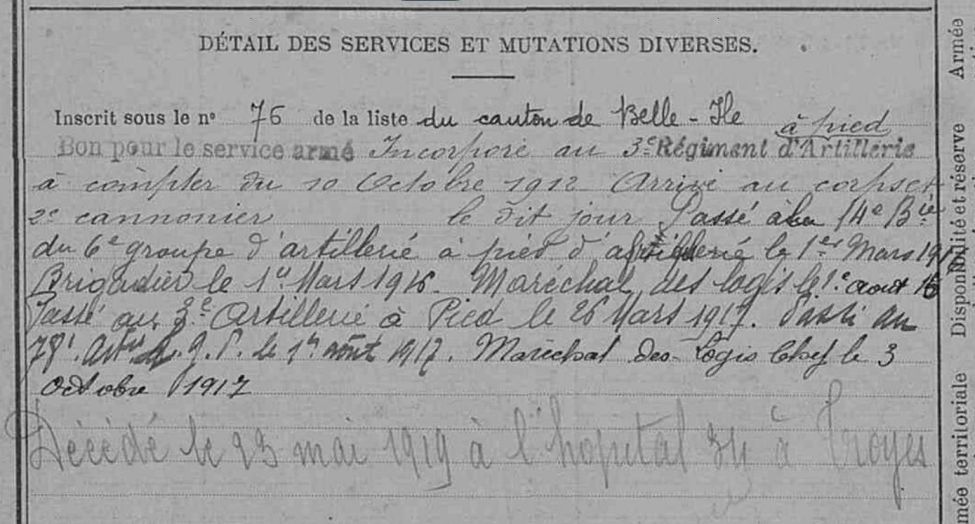 DÉTAIL DES SERVICES ET MUTATIONS DIVERSES.
Inscrit sous le nº 76 de la liste du canton de Belle-Ile
à pied
Bon pour le service armé Incorporé au 3e Régiment d'Artillerie
à compter du 10 Octobre 1912 Arrivé au corps et
2e cannonier le dit jour Passé à la 14e Bie
du 6e groupe d'artillerie à pied d' le 1er Mars 19
Brigadier le 1er Mars 1916. Maréchal des logis le 1er aout 16
Passé au 3e Artillerie à Pied le 26 Mars 1917. Passé au
78e. le 1er août 1917. Maréchal des Logis Chef le 3
Octobre 1917
Décédé le 23 mai 1919 à l'hopital 34 à Troyes
Armée
Disponibilité et réserve
mée territoriale